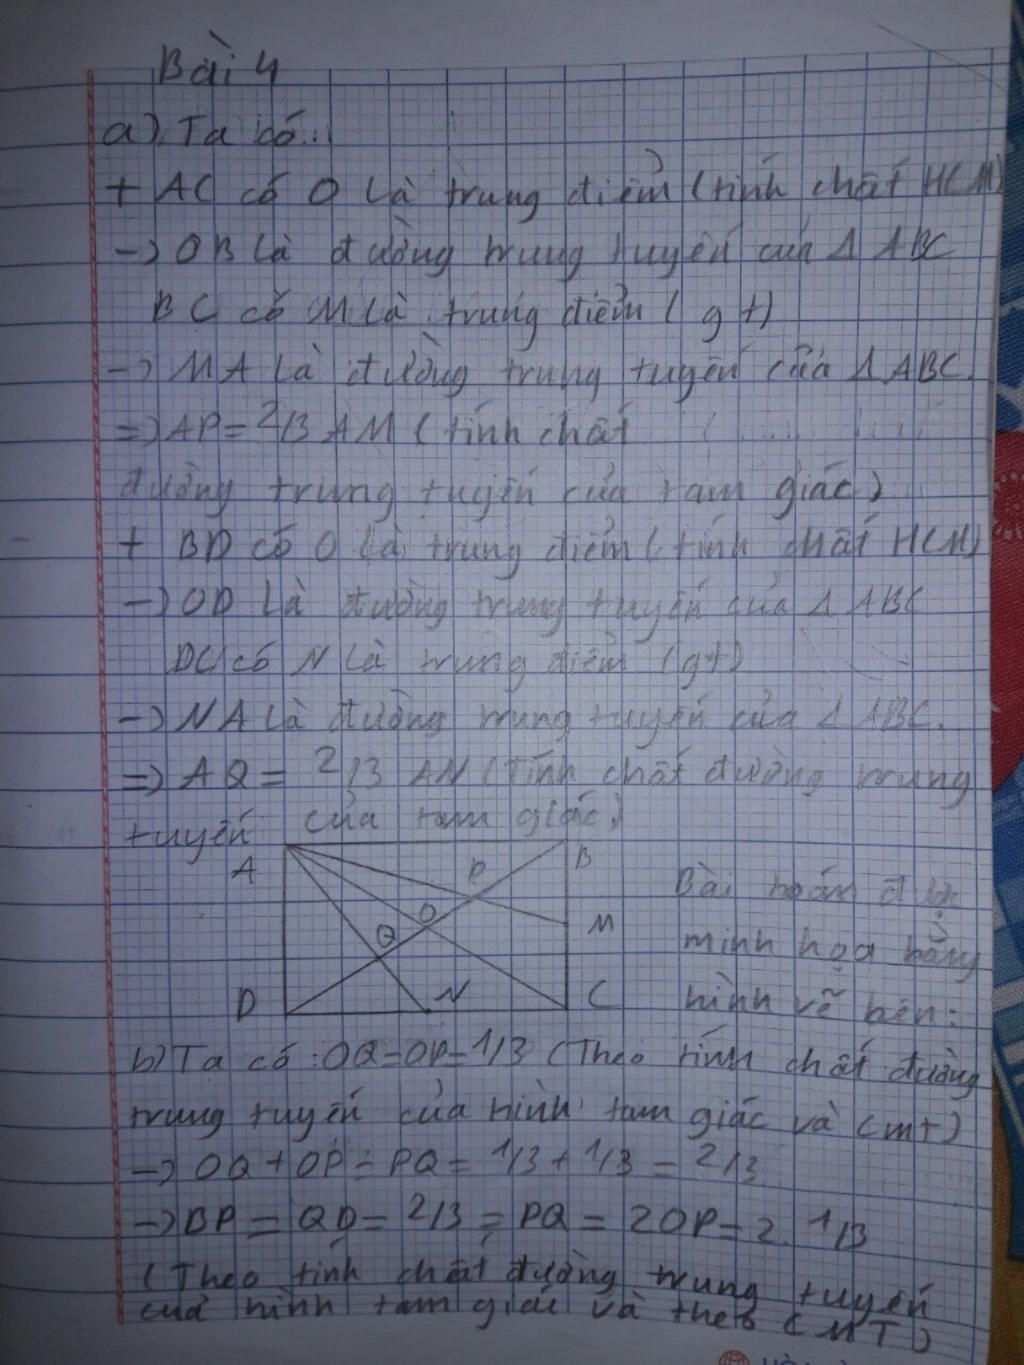 Bài 4
a). Ta có:
+ AC có O là trung điểm (tính chất HCN)
-> OB là đường trung tuyến của Δ ABC
BC có M là trung điểm (gt)
-> MA là đường trung tuyến của Δ ABC.
=> AP = 2/3 AM (tính chất
đường trung tuyến của tam giác)
+ BD có O là trung điểm (tính chất HCN)
-> OD là đường trung tuyến của Δ ABC
DC có N là trung điểm (gt)
-> NA là đường trung tuyến của Δ ABC.
=> AQ = 2/3 AN (tính chất đường trung
tuyến của tam giác)
A
P
B
O
Q
M
D
N
C
Bài toán được
minh họa bằng
hình vẽ bên:
b) Ta có: OQ = OP = 1/3 (Theo tính chất đường
trung tuyến của hình tam giác và (cmt)
-> OQ + OP = PQ = 1/3 + 1/3 = 2/3
-> BP = QD = 2/3 = PQ = 2OP = 2. 1/3
(Theo tính chất đường trung tuyến
của hình tam giác và theo (MT)